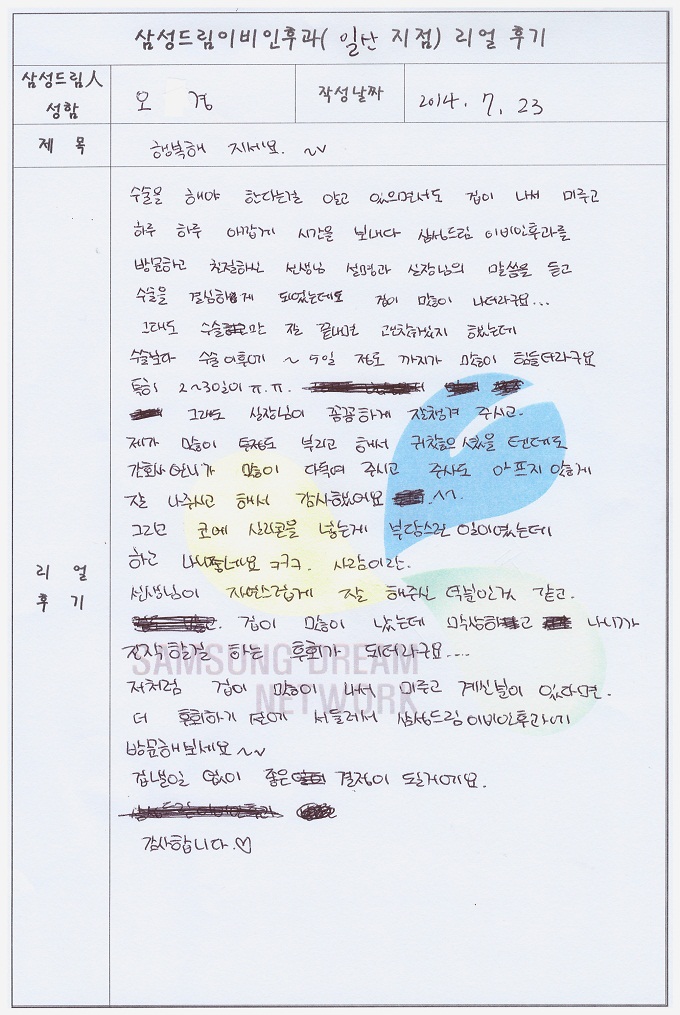 삼성드림이비인후과( 일산 지점) 리얼 후기
삼성드림人 성함
오 경
작성날짜
2014. 7. 23
제 목
행복해 지세요. ~
리 얼 후 기
수술을 해야 한다는걸 알고 있으면서도 겁이 나서 미루고
하루 하루 아깝게 시간을 보내다 삼성드림 이비인후과를
방문하고 친절하신 선생님 설명과 실장님의 말씀을 듣고
수술을 결심하게 되었는데도 겁이 많이 나더라구요...
그래도 수술만 잘 끝내면 괜찮겠지 했는데
수술보다 수술이후에 ~ 5일 정도 까지가 많이 힘들더라구요
특히 2~3일이 ㅠ.ㅠ.
그래도 실장님이 꼼꼼하게 잘챙겨 주시고.
제가 많이 투정도 부리고 해서 귀찮으셨을 텐데도
간호사언니가 많이 다독여 주시고 주사도 아프지 않게
잘 놔주시고 해서 감사했어요 .^^.
그리고 코에 실리콘을 넣는게 부담스런 일이였는데
하고 나니좋네요 ㅋㅋㅋ. 사람이란.
선생님이 자연스럽게 잘 해주신 덕분인것 같고.
겁이 많이 났는데 막상하고 나니가
진작할걸 하는 후회가 되더라구요....
SAMSUNG DREAM
NETWORK
저처럼 겁이 많이 나서 미루고 계신분이 있다면.
더 후회하기 전에 서둘러서 삼성드림이비인후과에
방문해보세요~~
겁낼일 없이 좋은 결정이 될거에요.
감사합니다.♡